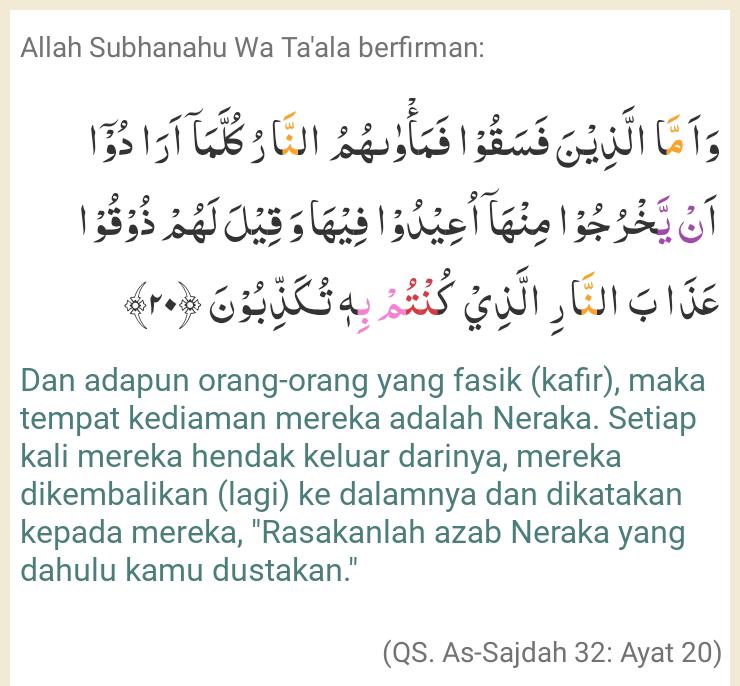 Allah Subhanahu Wa Ta'ala berfirman:
وَاَ مَّا الَّذِيْنَ فَسَقُوْا فَمَأْوٰٮهُمُ النَّا رُ كُلَّمَاۤ اَرَا دُوْۤا
اَنْ يَّخْرُجُوْا مِنْهَاۤ اُعِيْدُوْا فِيْهَا وَ قِيْلَ لَهُمْ ذُوْقُوْا
عَذَا بَ النَّا رِ الَّذِيْ كُنْتُمْ بِهٖ تُكَذِّبُوْنَ ﴿٢٠﴾
Dan adapun orang-orang yang fasik (kafir), maka
tempat kediaman mereka adalah Neraka. Setiap
kali mereka hendak keluar darinya, mereka
dikembalikan (lagi) ke dalamnya dan dikatakan
kepada mereka, "Rasakanlah azab Neraka yang
dahulu kamu dustakan."
(QS. As-Sajdah 32: Ayat 20)